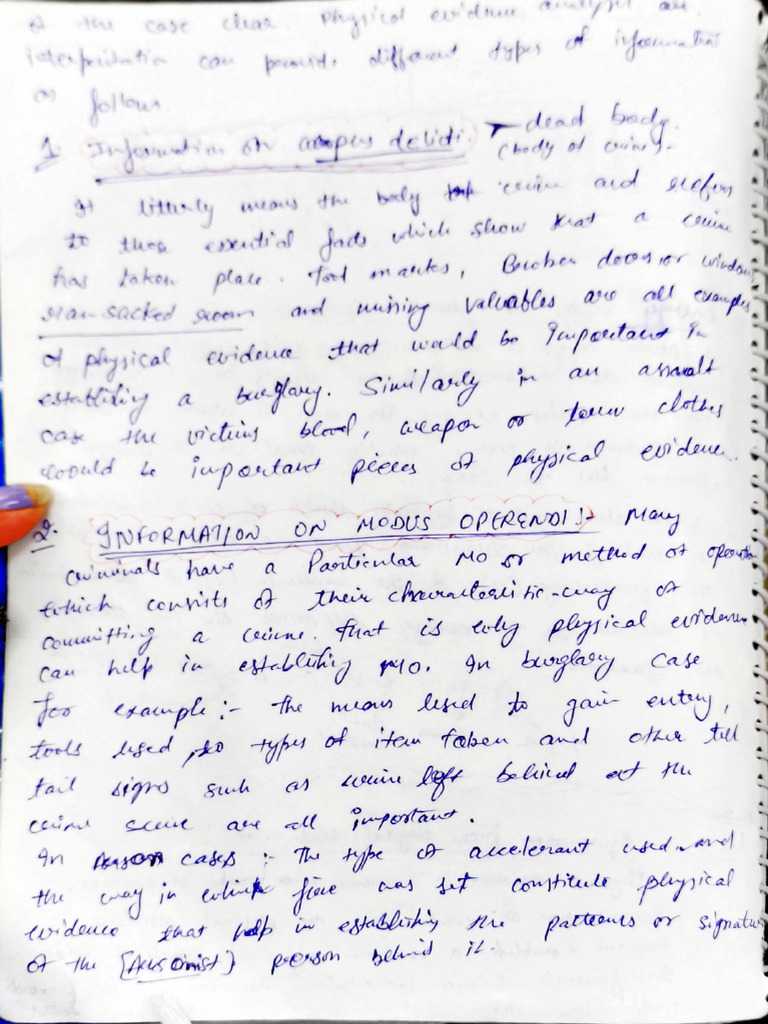 of the case clear. Physical evidence analysis and
interpritation can provide different types of information
as follows.
1. Information on corpus delicti. → dead body.
(body of crime).
It litterly means the body crime and refers
to those essential facts which show that a crime
has taken place. Tool marks, Broken doors or windows
ransacked room and missing valuables are all examples
of physical evidence that would be important in
establiting a burglary. Similarly in an assault
case the victims blood, weapon or torn clothes
would be important pieces of physical evidence.
2. INFORMATION ON MODUS OPERENDI :- Many
criminals have a Particular MO or method of operation
which consits of their characteristic way of
committing a crime. That is why physical evidence
can help in establiting MO. In burglary case
for example :- the means used to gain entry,
tools used, types of item taken and other tell
tail signs such as left behind at the
crime scene are all important.
In Arson cases : The type of accelerant used and
the way in which fire was set constitute physical
evidence that help in establishing the patterns or signature
of the [Arsonist] person behind it